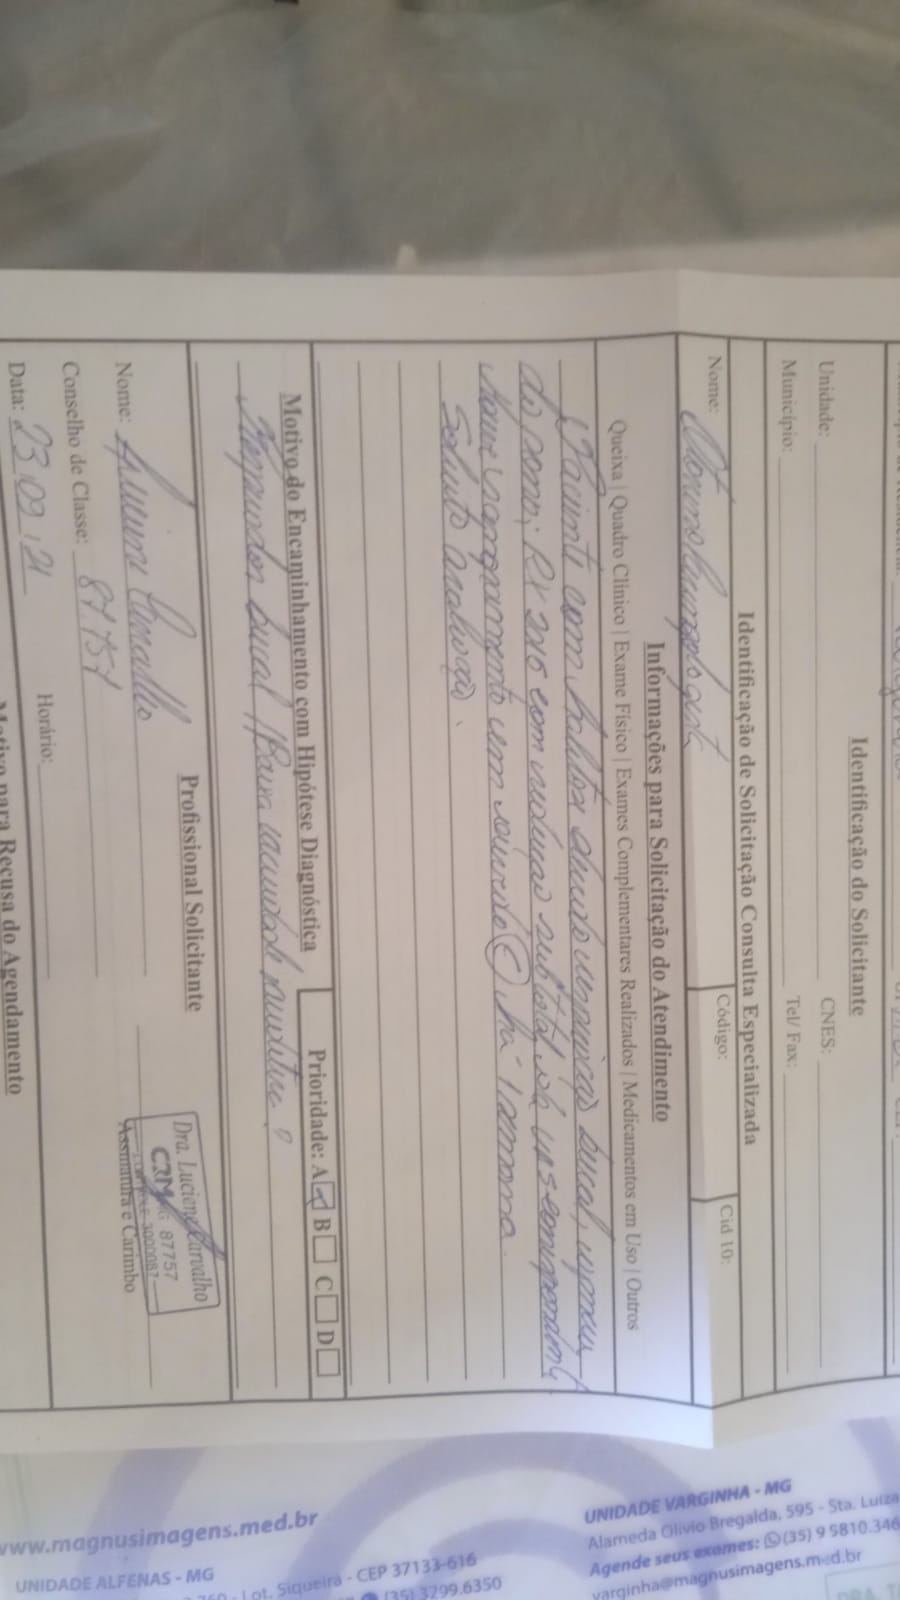 Identificação do Solicitante
Unidade: CNES:
Município: Tel/ Fax:
Identificação de Solicitação Consulta Especializada
Nome: Otorrinolaringologista Código: Cid 10:
Informações para Solicitação do Atendimento
Queixa | Quadro Clínico | Exame Físico | Exames Complementares Realizados | Medicamentos em Uso | Outros
Paciente com halitose, respiração bucal,
do sono; RX com redução subtotal da
sangramento em ouvido (E) há 1 semana.
Solicito avaliação.
Motivo do Encaminhamento com Hipótese Diagnóstica Prioridade: A B C D
Respirador bucal / Baixa acuidade auditiva?
Profissional Solicitante
Nome: Luciene Carvalho
Conselho de Classe: 87.757
Dra. Luciene Carvalho
CRM MG 87757
Assinatura e Carimbo
Data: 23/09/21 Horário:
Motivo para Recusa do Agendamento
www.magnusimagens.med.br
UNIDADE ALFENAS - MG
Lot. Siqueira - CEP 37133-616
(35) 3299.6350
UNIDADE VARGINHA - MG
Alameda Olivio Bregalda, 595 - Sta. Luiza
Agende seus exames: (35) 9 5810.346
varginha@magnusimagens.med.br